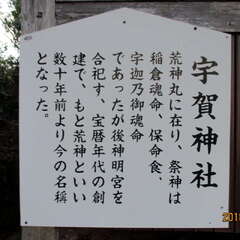 宇賀神社
荒神丸に在り、祭神は
稲倉魂命、保命食、
宇迦乃御魂命
であったが後神明宮を
合祀す、宝暦年代の創
建で、もと荒神といい
数十年前より今の名称
となった。